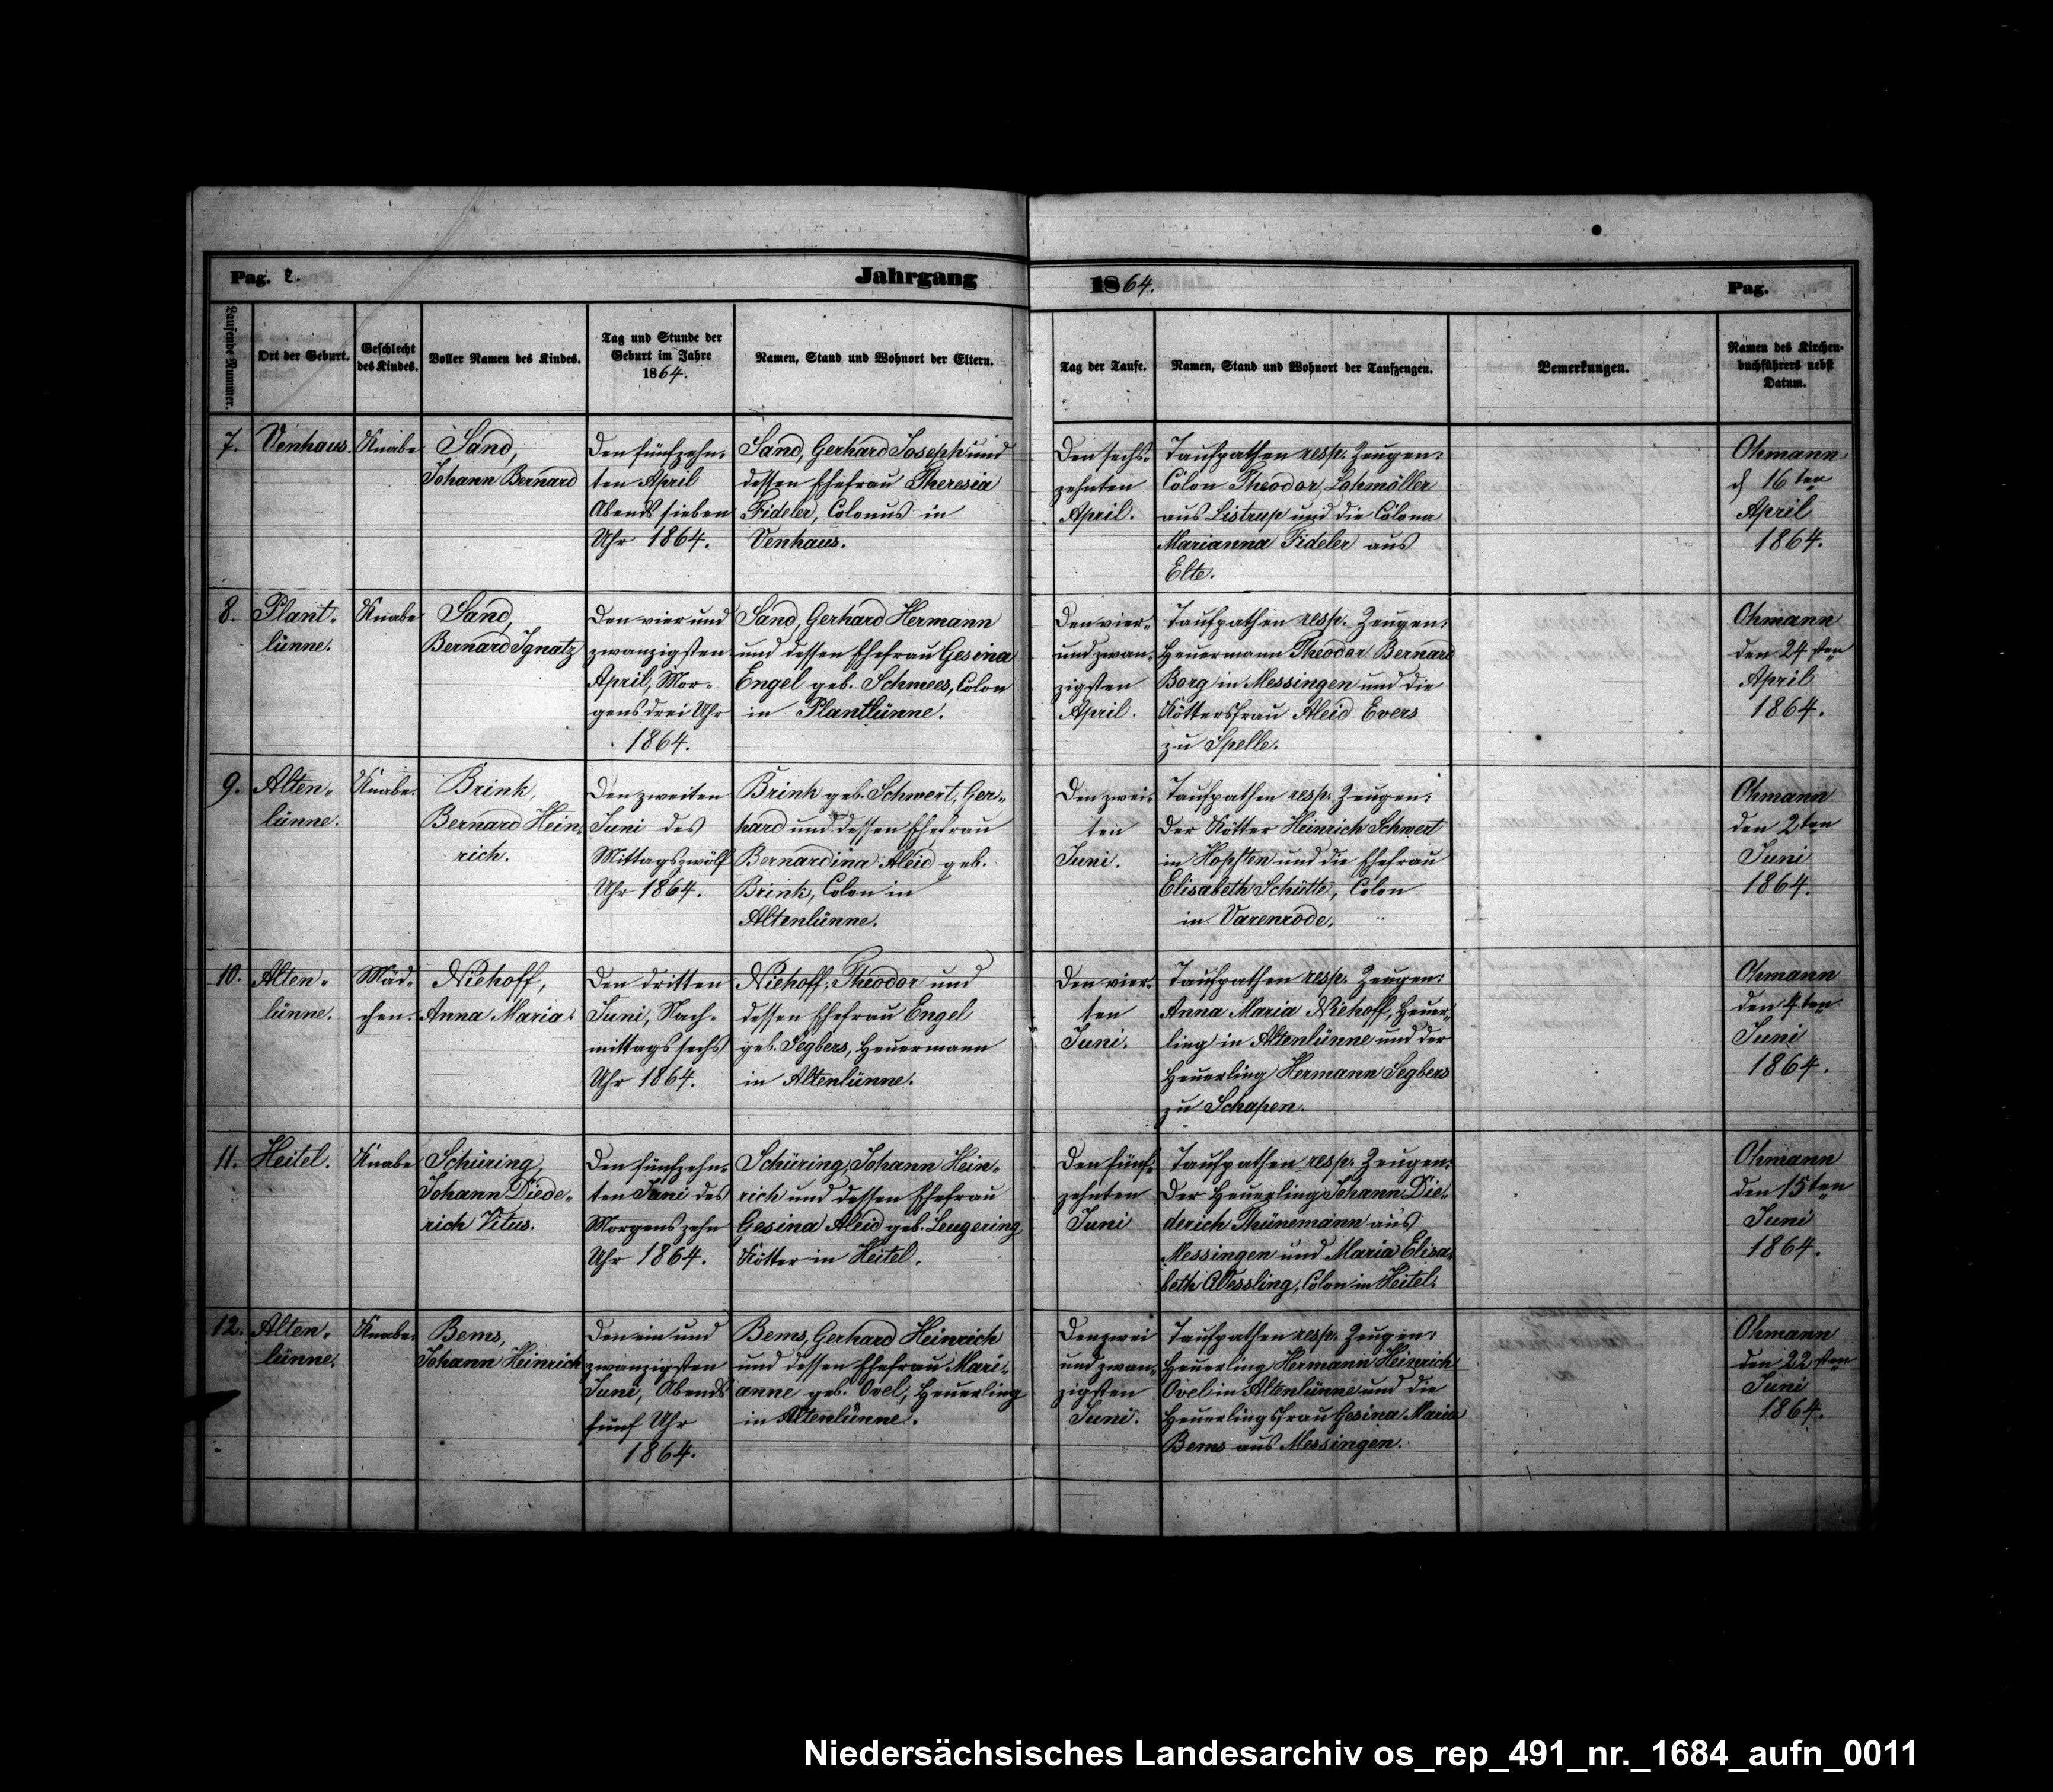 Pag. 2.
Jahrgang
1864.
Pag.
Laufende Nummer.
Ort der Geburt.
Geschlecht
des Kindes.
Voller Namen des Kindes.
Tag und Stunde der
Geburt im Jahre
1864.
Namen, Stand und Wohnort der Eltern.
Tag der Taufe.
Namen, Stand und Wohnort der Taufzeugen.
Bemerkungen.
Namen des Kirchen-
buchführers nebst
Datum.
7.
Venhaus.
Knabe
Sand,
Johann Bernard
Den fünfzehn-
ten April
Abends sieben
Uhr 1864.
Sand, Gerhard Joseph und
dessen Ehefrau Theresia
Fideler, Colonus in
Venhaus.
Den sechs-
zehnten
April.
Taufpathen resp. Zeugen:
Colon Theodor Lohmöller
aus Listrup und die Colona
Marianna Fideler aus
Elte.
Ohmann
d 16ten
April
1864.
8.
Plant-
lünne.
Knabe
Sand,
Bernard Ignatz
Den vier und
zwanzigsten
April, Mor-
gens drei Uhr
1864.
Sand, Gerhard Hermann
und dessen Ehefrau Gesina
Engel geb. Schmees, Colon
in Plantlünne.
Den vier-
und zwan-
zigsten
April.
Taufpathen resp. Zeugen:
Heuermann Theodor Bernard
Borg in Messingen und die
Köttersfrau Aleid Evers
zu Spelle.
Ohmann
den 24sten
April
1864.
9.
Alten-
lünne.
Knabe.
Brink,
Bernard Hein-
rich.
Den zweiten
Juni des
Mittags zwölf
Uhr 1864.
Brink geb. Schwert, Ger-
hard und dessen Ehefrau
Bernardina Aleid geb.
Brink, Colon in
Altenlünne.
Den zwei-
ten
Juni.
Taufpathen resp. Zeugen:
Der Kötter Heinrich Schwert
in Hopsten und die Ehefrau
Elisabeth Schütte, Colon
in Varenrode.
Ohmann
den 2ten
Juni
1864.
10.
Alten-
lünne.
Mäd-
chen.
Niehoff,
Anna Maria.
Den dritten
Juni, Nach-
mittags sechs
Uhr 1864.
Niehoff, Theodor und
dessen Ehefrau Engel
geb. Segbers, Heuermann
in Altenlünne.
Den vier-
ten
Juni.
Taufpathen resp. Zeugen:
Anna Maria Niehoff, Heuer-
ling in Altenlünne und der
Heuerling Hermann Segbers
zu Schapen.
Ohmann
den 4ten
Juni
1864.
11.
Heitel.
Knabe
Schüring,
Johann Diede-
rich Vitus.
Den fünfzehn-
ten Juni des
Morgens zehn
Uhr 1864.
Schüring, Johann Hein-
rich und dessen Ehefrau
Gesina Aleid geb. Leugering
Kötter in Heitel.
Den fünf-
zehnten
Juni
Taufpathen resp. Zeugen:
Der Heuerling Johann Die-
derich Thünemann aus
Messingen und Maria Elisa-
beth Wessling, Colon in Heitel.
Ohmann
den 15ten
Juni
1864.
12.
Alten-
lünne.
Knabe.
Bems,
Johann Heinrich
Den ein und
zwanzigsten
Juni, Abends
fünf Uhr
1864.
Bems, Gerhard Heinrich
und dessen Ehefrau Mari-
anne geb. Ovel, Heuerling
in Altenlünne.
Den zwei
und zwan-
zigsten
Juni.
Taufpathen resp. Zeugen:
Heuerling Hermann Heinrich
Ovel in Altenlünne und die
Heuerlingsfrau Gesina Maria
Bems aus Messingen.
Ohmann
den 22sten
Juni
1864.
Niedersächsisches Landesarchiv os_rep_491_nr._1684_aufn_0011